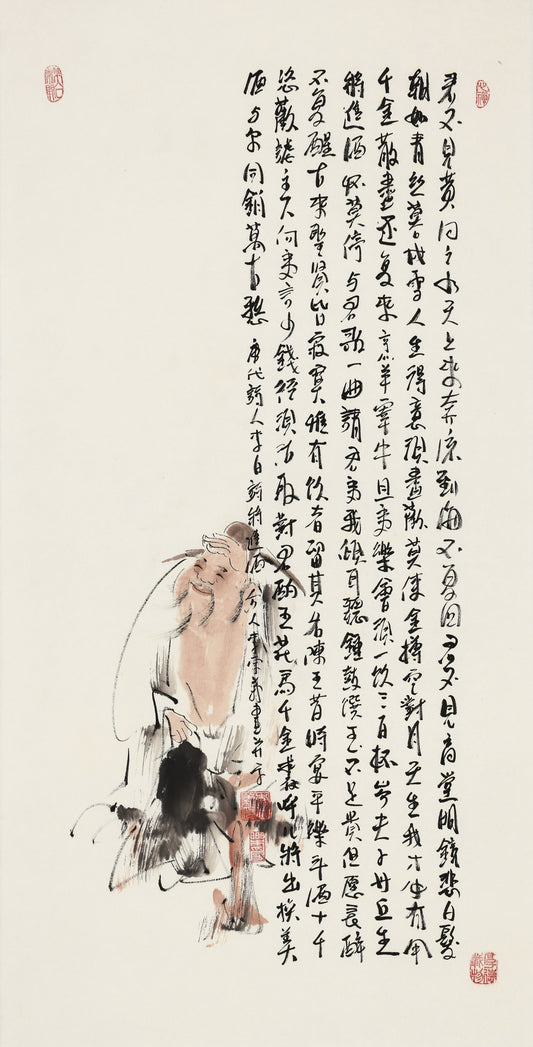 君不見黃河之水天上來奔流到海不復回君不見高堂明鏡悲白髮
朝如青丝暮成雪人生得意須盡歡莫使金樽空對月天生我才必有用
千金散盡還復來烹羊宰牛且為樂會須一飲三百杯岑夫子丹丘生
將進酒杯莫停与君歌一曲請君為我傾耳聽鐘鼓饌玉不足貴但愿長醉
不復醒古來聖賢皆寂寞惟有飲者留其名陳王昔時宴平樂斗酒十千
恣歡謔主人何為言少錢徑須沽取對君酌五花馬千金裘呼儿將出換美
酒与尔同銷萬古愁 唐代詩人李白詩將進酒 今人李榮畫并字